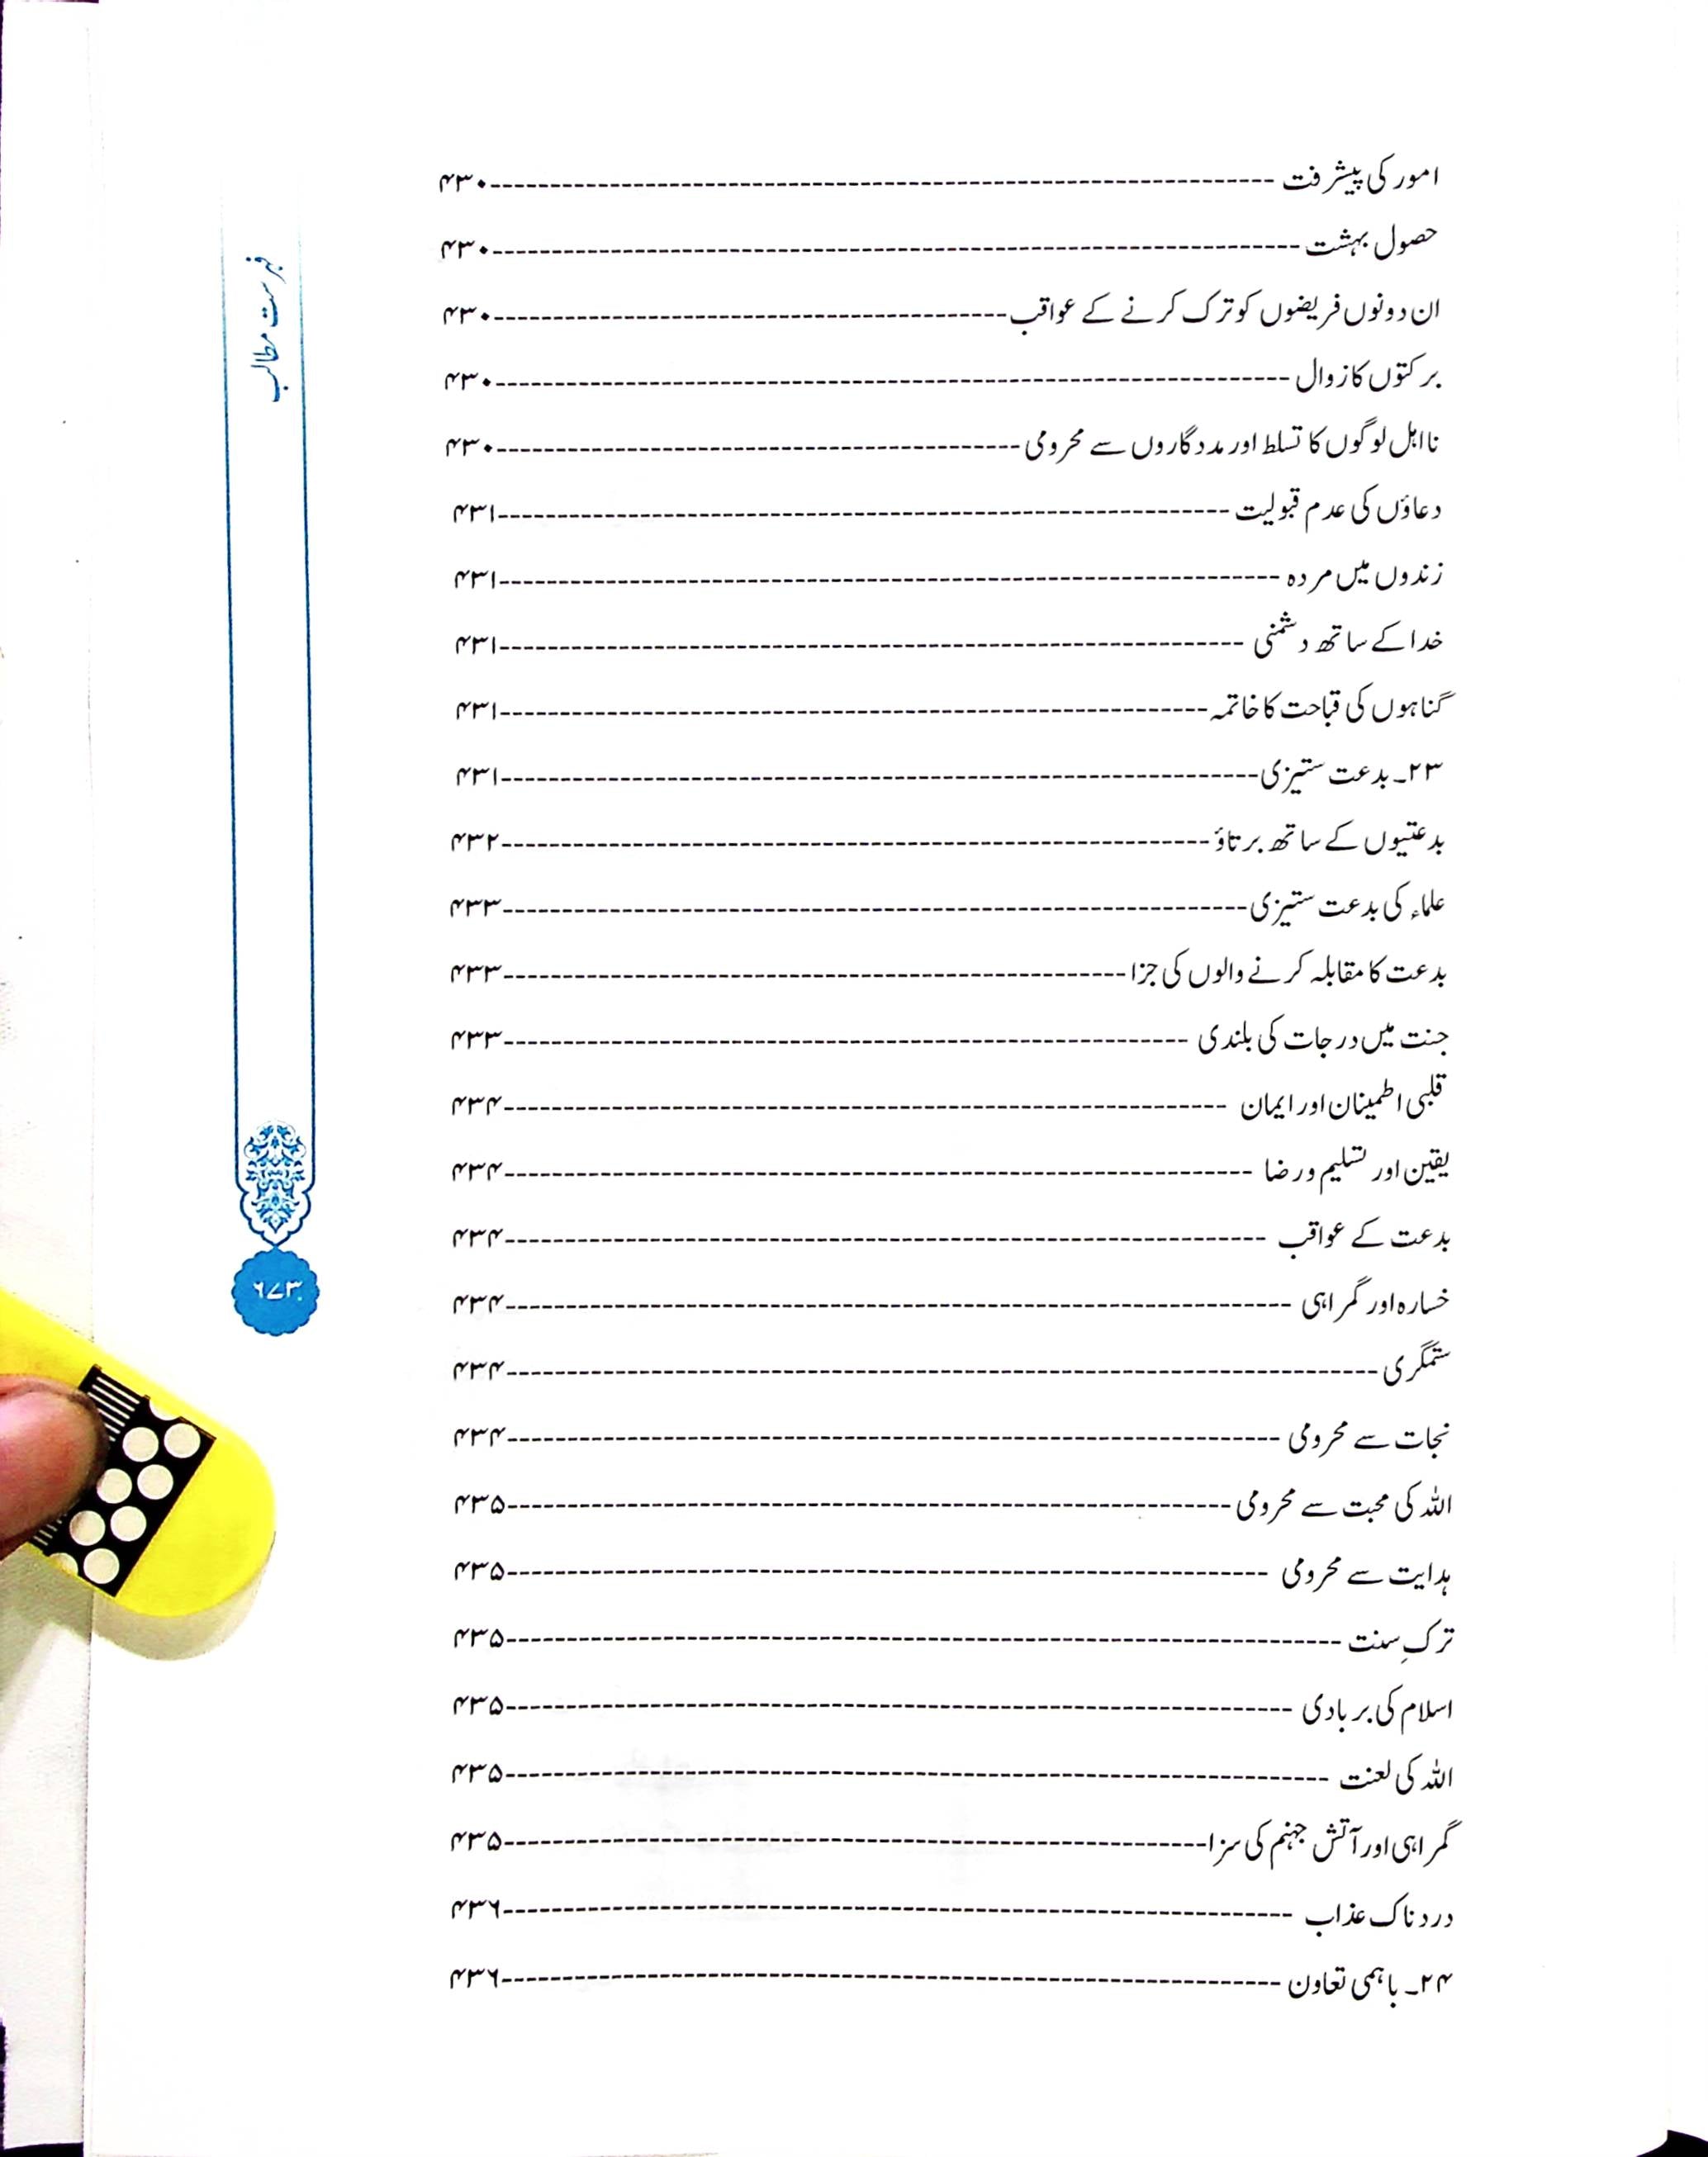 امور کی پیشرفت ---------- ۴۳۰
حصول بہشت ---------- ۴۳۰
ان دونوں فریضوں کو ترک کرنے کے عواقب ---------- ۴۳۰
برکتوں کا زوال ---------- ۴۳۰
نااہل لوگوں کا تسلط اور مددگاروں سے محرومی ---------- ۴۳۰
دعاؤں کی عدم قبولیت ---------- ۴۳۱
زندوں میں مردہ ---------- ۴۳۱
خدا کے ساتھ دشمنی ---------- ۴۳۱
گناہوں کی قباحت کا خاتمہ ---------- ۴۳۱
۲۳۔ بدعت ستیزی ---------- ۴۳۱
بدعتیوں کے ساتھ برتاؤ ---------- ۴۳۲
علماء کی بدعت ستیزی ---------- ۴۳۳
بدعت کا مقابلہ کرنے والوں کی جزا ---------- ۴۳۳
جنت میں درجات کی بلندی ---------- ۴۳۳
قلبی اطمینان اور ایمان ---------- ۴۳۴
یقین اور تسلیم و رضا ---------- ۴۳۴
بدعت کے عواقب ---------- ۴۳۴
خسارہ اور گمراہی ---------- ۴۳۴
ستمگری ---------- ۴۳۴
نجات سے محرومی ---------- ۴۳۴
اللہ کی محبت سے محرومی ---------- ۴۳۵
ہدایت سے محرومی ---------- ۴۳۵
ترکِ سنت ---------- ۴۳۵
اسلام کی بربادی ---------- ۴۳۵
اللہ کی لعنت ---------- ۴۳۵
گمراہی اور آتش جہنم کی سزا ---------- ۴۳۵
دردناک عذاب ---------- ۴۳۶
۲۴۔ باہمی تعاون ---------- ۴۳۶
فہرست مطالب
۶۷۳